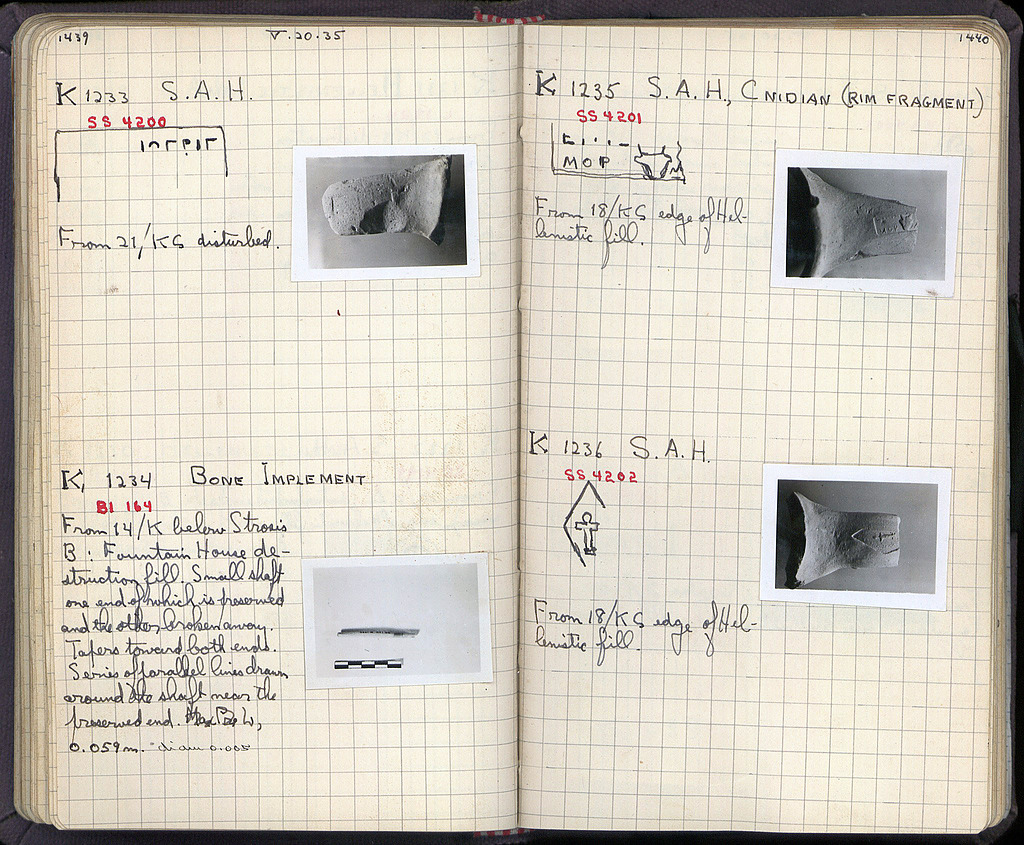 1439
V.20.35
K 1233 S.A.H.
SS 4200
From 21/KS disturbed.
K 1234 BONE IMPLEMENT
BI 164
From 14/K below Strosis
B: Fountain House de-
struction fill. Small shaft
one end of which is preserved
and the other broken away.
Tapers toward both ends.
Series of parallel lines drawn
around the shaft near the
preserved end. L,
0.059m. diam 0.005
1440
K 1235 S.A.H., CNIDIAN (RIM FRAGMENT)
SS 4201
ΜΟΡ
From 18/KS edge of Hel-
lenistic fill.
K 1236 S.A.H.
SS 4202
From 18/KS edge of Hel-
lenistic fill.